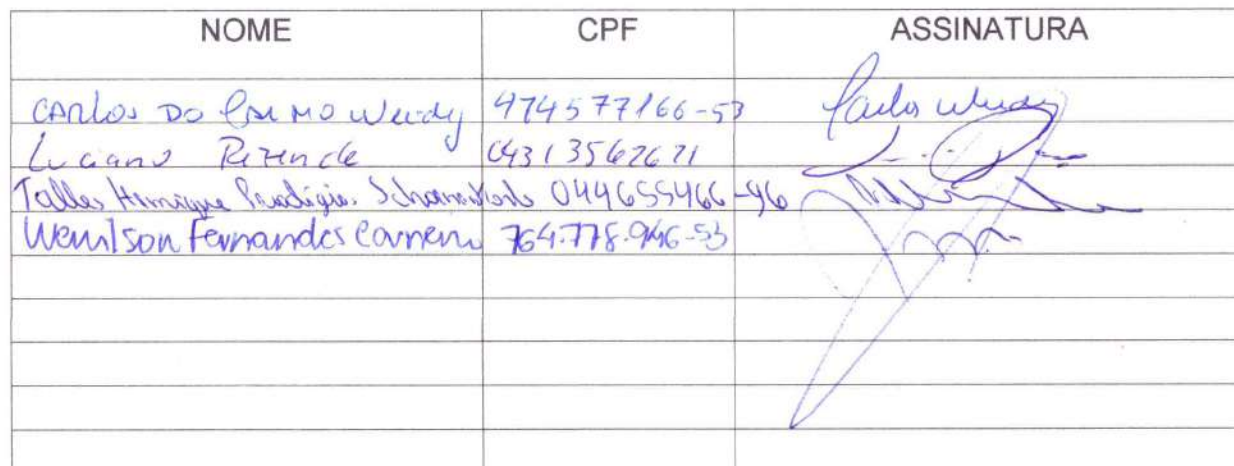 NOME CPF ASSINATURA
CARlos DO CARMO Wendy 474577166-53 Carlos Wendy
Luciano Rezende 04313562671
Talles Henrique 044655466-96
Wemilson Fernandes Carneiro 764.778.946-53